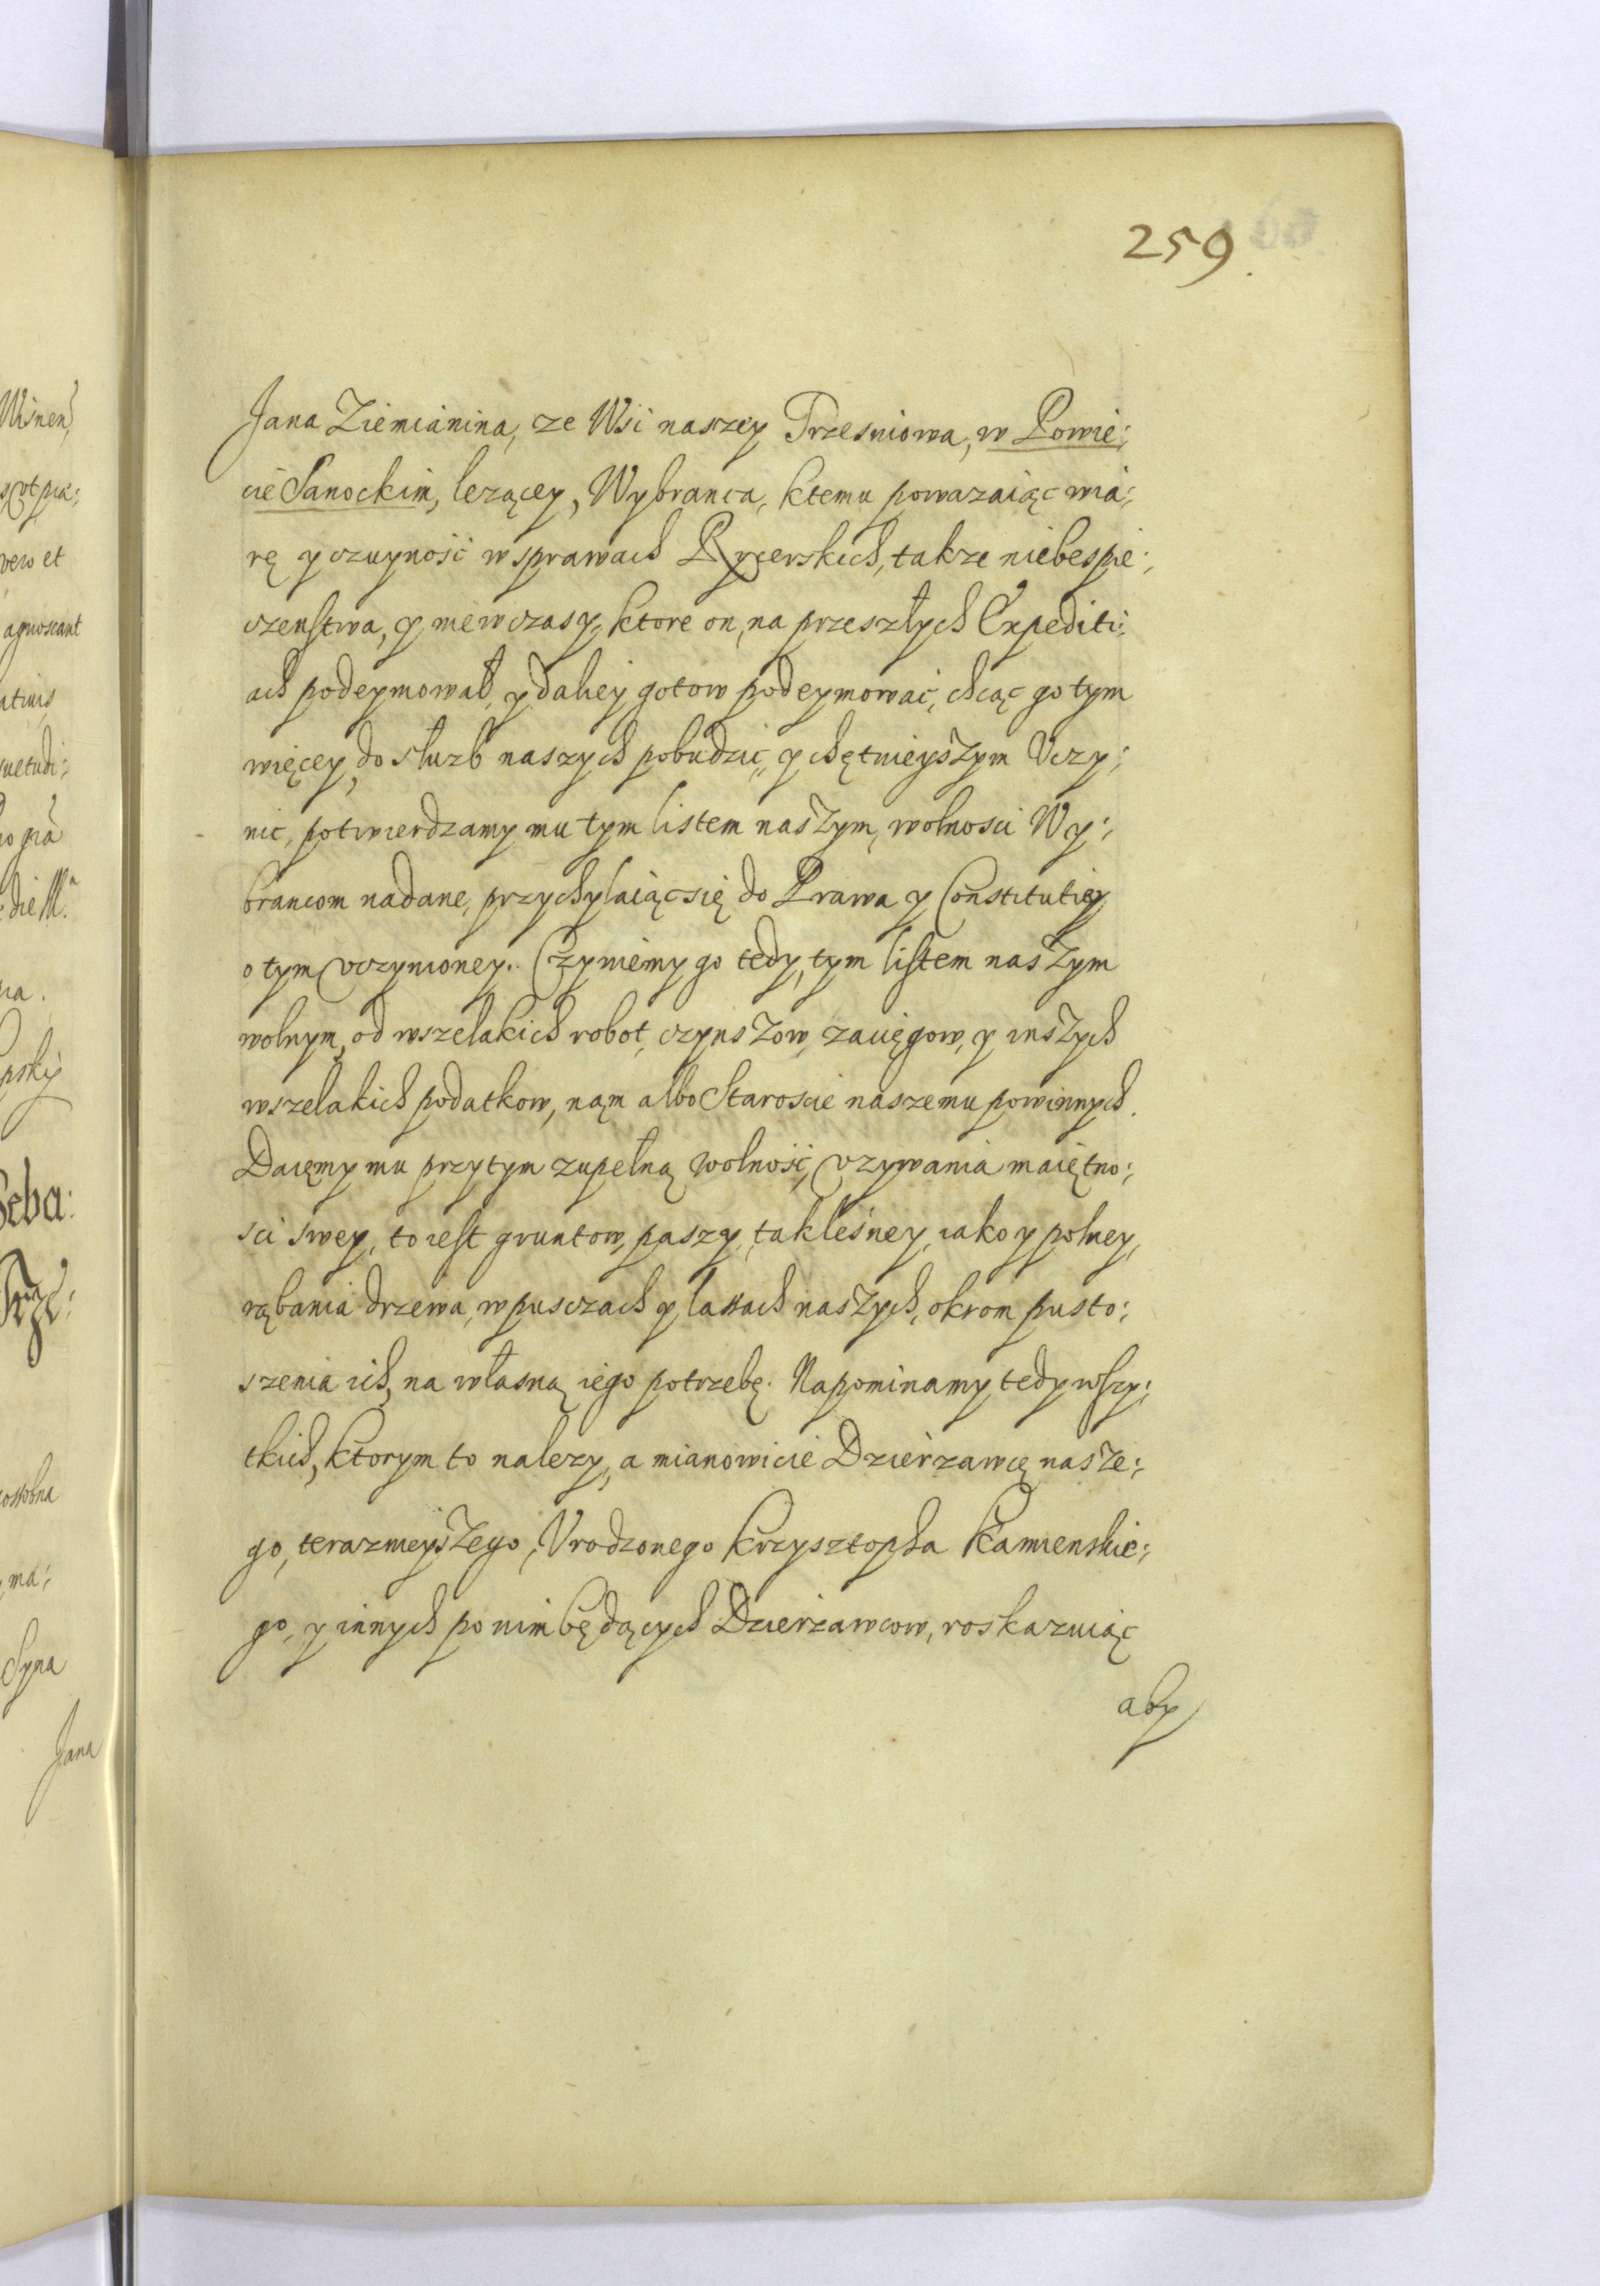 259.
Jana Ziemianina, ze Wsi naszey Trzesniowa, w Powie:
cie Sanockim, lezącey, Wybranca, ktemu powazaiąc wia:
rę y czuyność w sprawach Rycerskich, takze niebespie:
czenstwa, y niewczasy, ktore on, na przeszłych Expediti:
ach podeymował, y daliey gotow podeymować, chcąc go tym
więcey do słuzb naszych pobudzić, y chętnieyszym Vczy:
nic, potwierdzamy mu tym listem naszym, wolnosci Wy:
brancom nadane, przychylaiąc się do Prawa y Constitutiey
o tym vczynioney. Czyniemy go tedy, tym listem naszym
wolnym, od wszelakich robot, czynszow, zacięgow, y inszych
wszelakich podatkow, nąm albo Staroscie naszemu powinnych.
Daiemy mu przytym zupełną wolność, vzywania maiętno:
sci swey, to iest gruntow, paszy, tak leśney, iako y polney,
rąbania drzewa, w pusczach y lassach naszych, okrom pusto:
szenia ich, na własną iego potrzebę. Napominamy tedy wszy:
tkich, ktorym to nalezy, a mianowicie Dzierzawcę nasze:
go, teraznieyszego, Vrodzonego Krzysztopha Kamienskie:
go, y innych po nim będących Dzierzawcow, roskazuiąc
aby
agnoscant
Syna
Jana